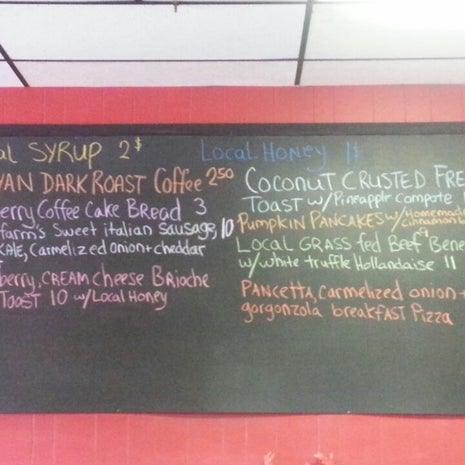 al SYRUP 2$
YAN DARK ROAST Coffee 2.50
erry Coffee Cake Bread 3
farm's Sweet italian Sausage, 10
KALE, Carmelized onion + cheddar
berry, CREAM cheese Brioche
TOAST 10 w/Local Honey
Local Honey 1$
Coconut CRUSTED FRE
TOAST w/Pineapple Compote 1
Pumpkin PANCAKES w/Homemade
Cinnamon
9
Local GRASS fed Beef Bene
w/white truffle Hollandaise 11
PANCETTA, Carmelized onion +
gorgonzola breakfast Pizza